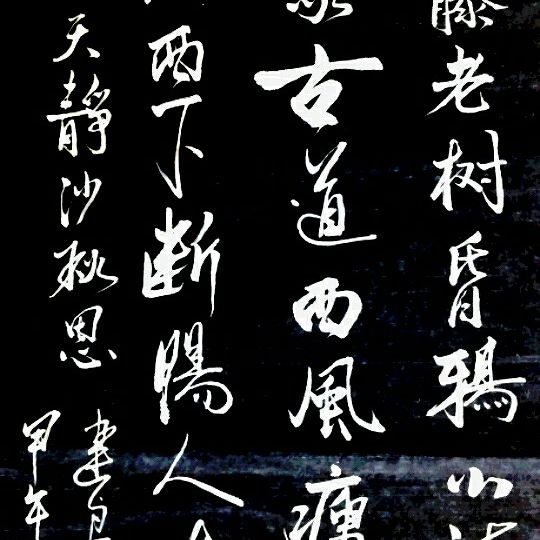 藤老树昏鴉小
家古道西風瘦
西下断腸人
天靜沙秋思
建
甲午